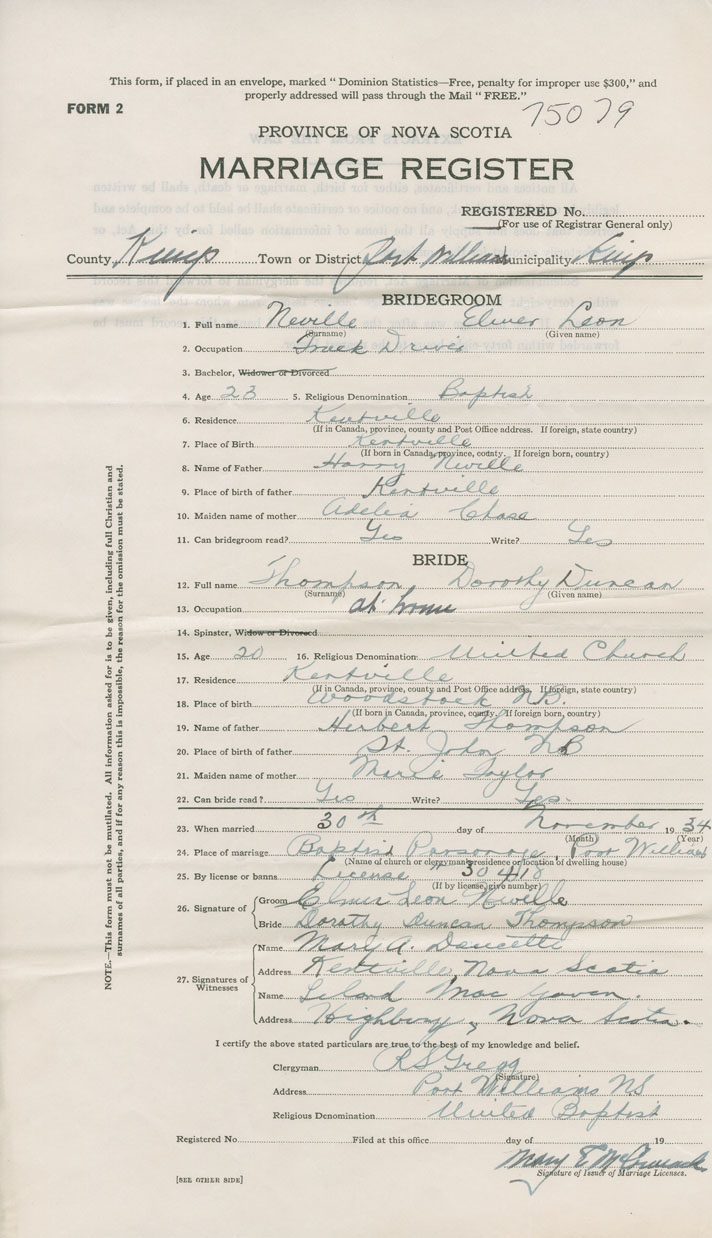 This form, if placed in an envelope, marked " Dominion Statistics—Free, penalty for improper use $300," and
properly addressed will pass through the Mail " FREE."
FORM 2
75079
PROVINCE OF NOVA SCOTIA
MARRIAGE REGISTER
REGISTERED No.
(For use of Registrar General only)
County Kings Town or District Port Williams Municipality Kings
BRIDEGROOM
1. Full name Neville Elmer Leon
(Surname) (Given name)
2. Occupation Truck Driver
3. Bachelor, Widower or Divorced
4. Age 23 5. Religious Denomination Baptist
6. Residence Kentville
(If in Canada, province, county and Post Office address. If foreign, state country)
7. Place of Birth Kentville
(If born in Canada, province, county. If foreign born, country)
8. Name of Father Harry Neville
9. Place of birth of father Kentville
10. Maiden name of mother Adelia Chase
11. Can bridegroom read? Yes Write? Yes
BRIDE
12. Full name Thompson Dorothy Duncan
(Surname) (Given name)
13. Occupation at home
14. Spinster, Widow or Divorced
15. Age 20 16. Religious Denomination United Church
17. Residence Kentville
(If in Canada, province, county and Post Office address. If foreign, state country)
18. Place of birth Woodstock N.B.
(If born in Canada, province, county. If foreign born, country)
19. Name of father Herbert Thompson
20. Place of birth of father St. John NB
21. Maiden name of mother Marie Taylor
22. Can bride read? Yes Write? Yes.
23. When married 30th day of November 1934
(Month) (Year)
24. Place of marriage Baptist Parsonage, Port Williams
(Name of church or clergyman's residence or location of dwelling house)
25. By license or banns License # 30418
(If by license, give number)
26. Signature of Groom Elmer Leon Neville
Bride Dorothy Duncan Thompson
27. Signatures of Witnesses
Name Mary A. Doucette
Address Kentville, Nova Scotia
Name Leland Mac
Address Highbury, Nova Scotia.
I certify the above stated particulars are true to the best of my knowledge and belief.
Clergyman R S Gregg
(Signature)
Address Port Williams NS
Religious Denomination United Baptist
Registered No. Filed at this office day of 19
Mary E McCormack
Signature of Issuer of Marriage Licenses.
[SEE OTHER SIDE]
NOTE.—This form must not be mutilated. All information asked for is to be given, including full Christian and
surnames of all parties, and if for any reason this is impossible, the reason for the omission must be stated.